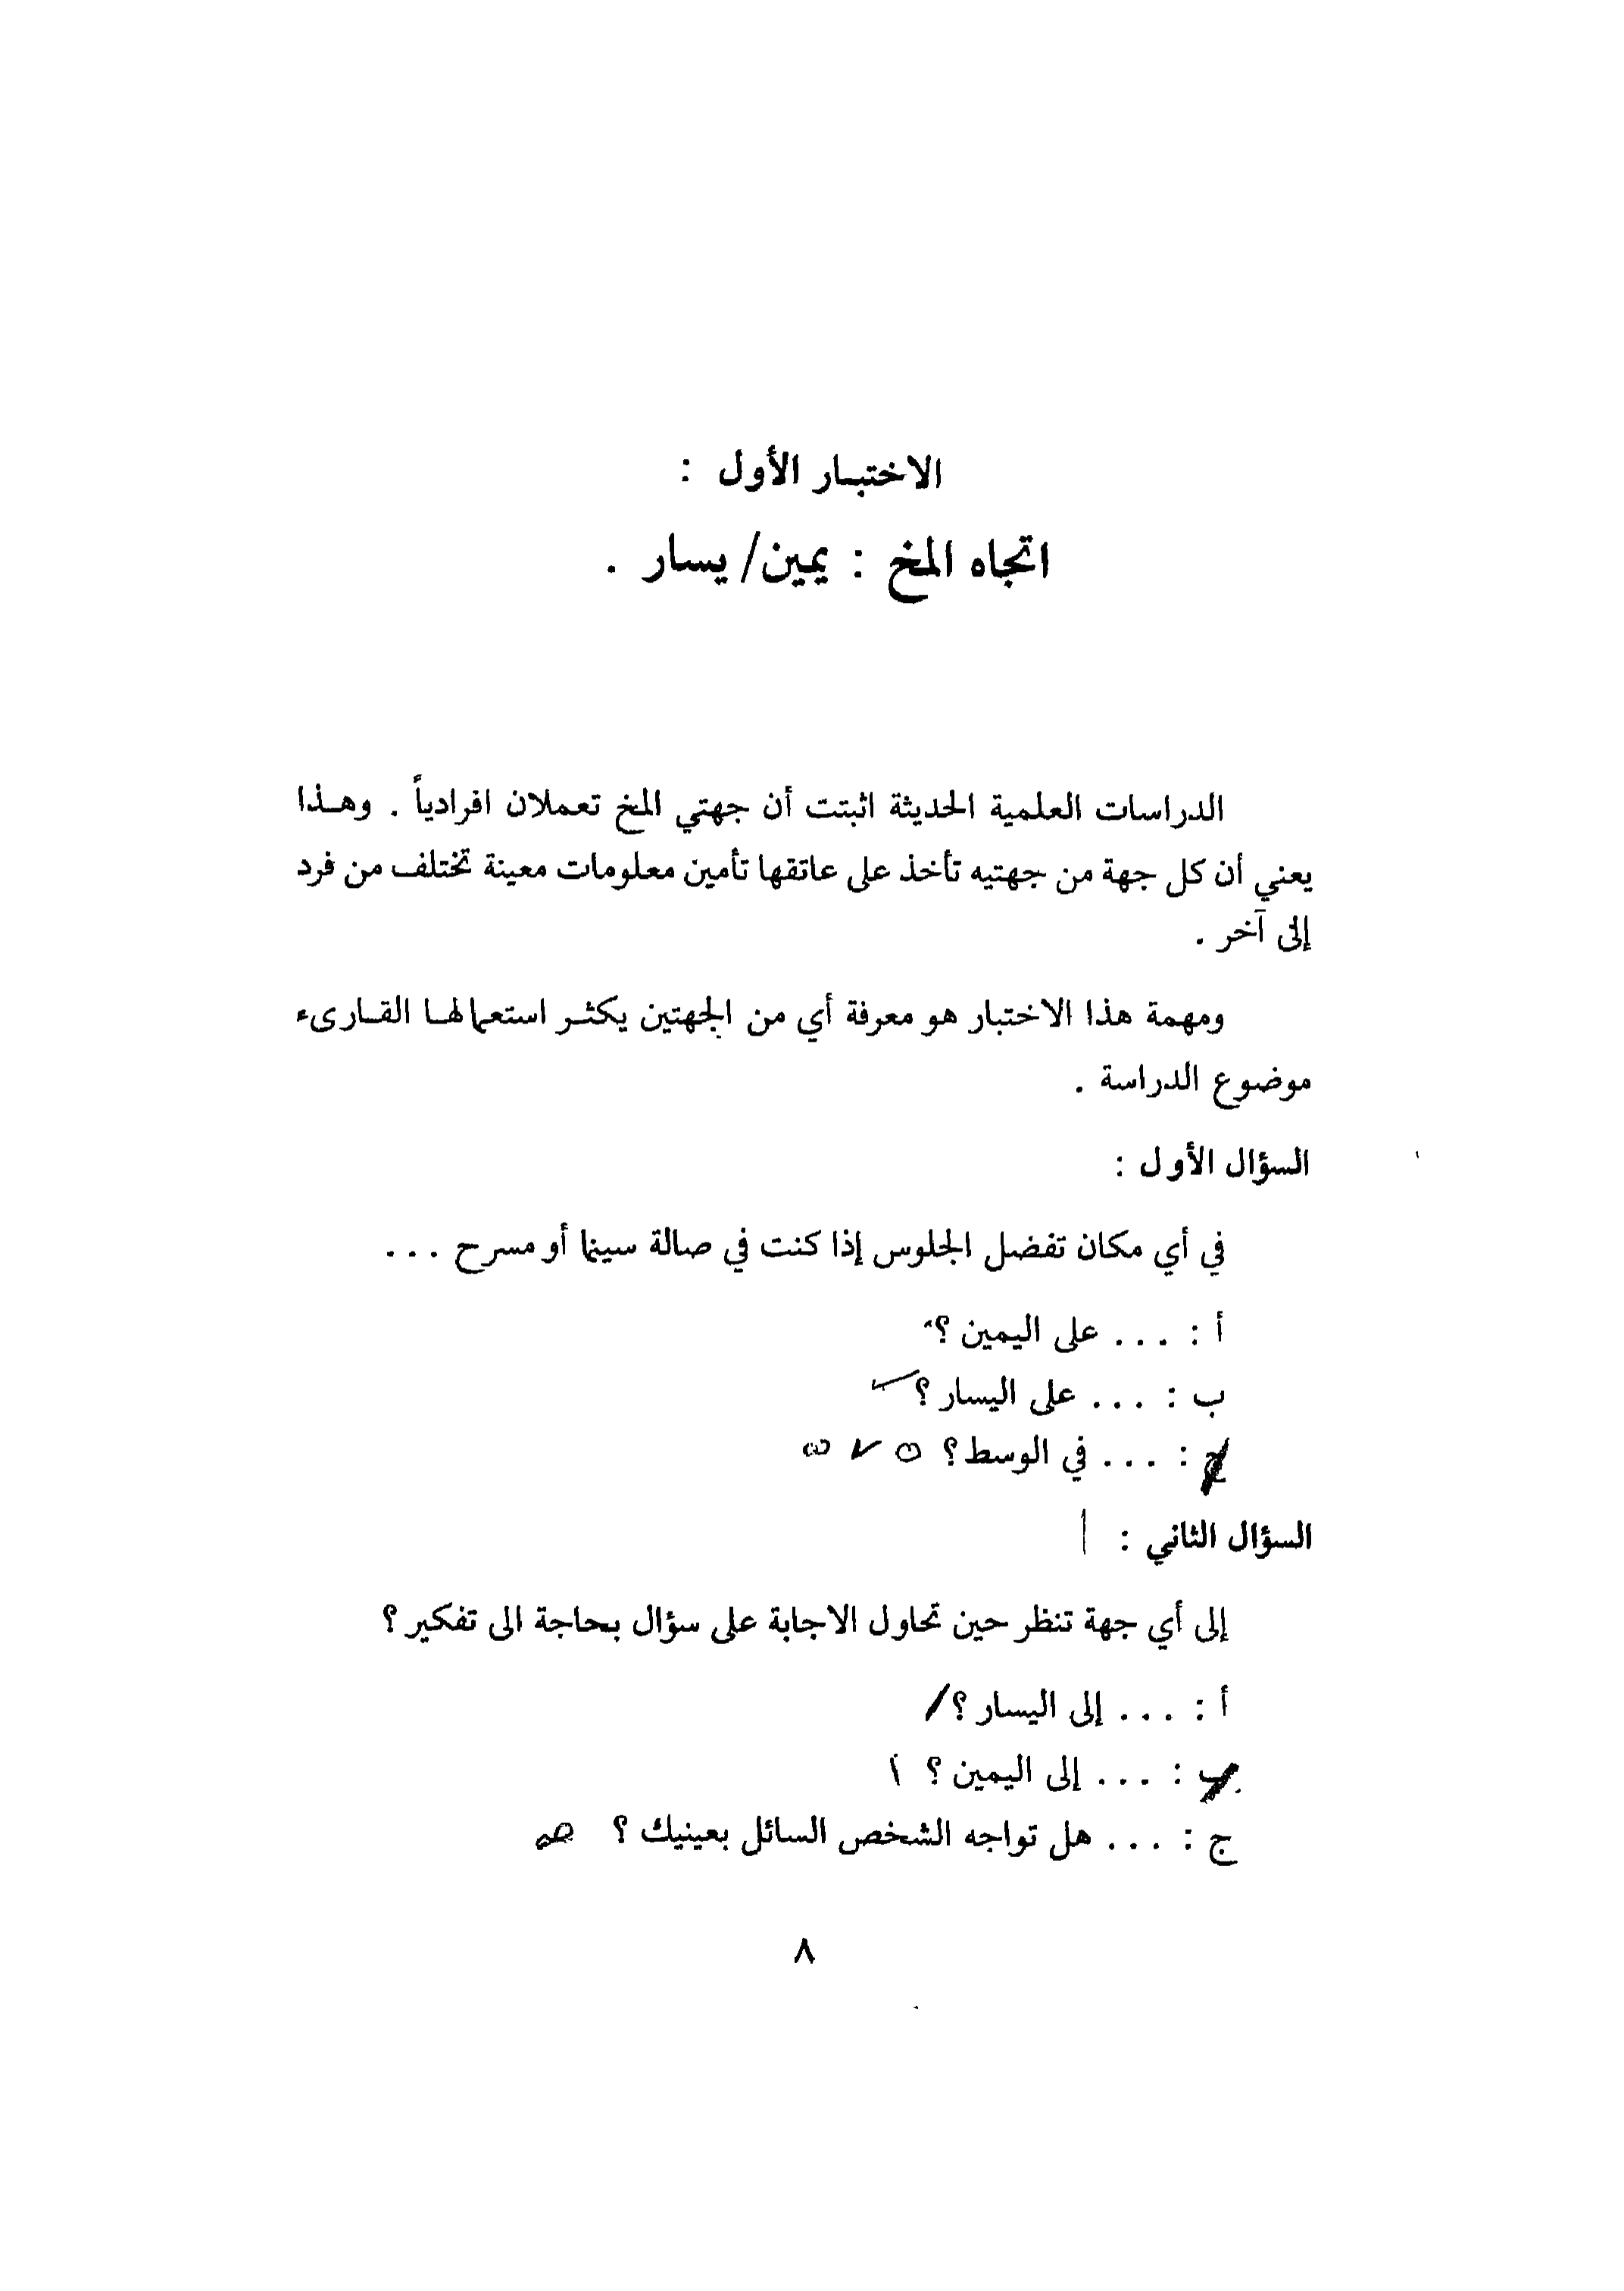 الاختبار الأول :
اتجاه المخ : يمين/يسار .
الدراسات العلمية الحديثة اثبتت أن جهتي المخ تعملان افرادياً . وهذا
يعني أن كل جهة من جهتيه تأخذ على عاتقها تأمين معلومات معينة تختلف من فرد
إلى آخر .
ومهمة هذا الاختبار هو معرفة أي من الجهتين يكثر استعمالها القارىء
موضوع الدراسة .
السؤال الأول :
في أي مكان تفضل الجلوس إذا كنت في صالة سينما أو مسرح . . .
أ : . . . على اليمين ؟
ب : . . . على اليسار ؟
ج : . . . في الوسط ؟
السؤال الثاني :
إلى أي جهة تنظر حين تحاول الاجابة على سؤال بحاجة الى تفكير ؟
أ : . . . إلى اليسار ؟
ب : . . . إلى اليمين ؟
ج : . . . هل تواجه الشخص السائل بعينيك ؟
٨